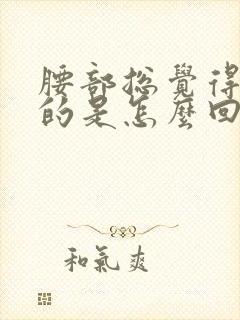 腰部总覺得
的是怎麼回
和氣爽